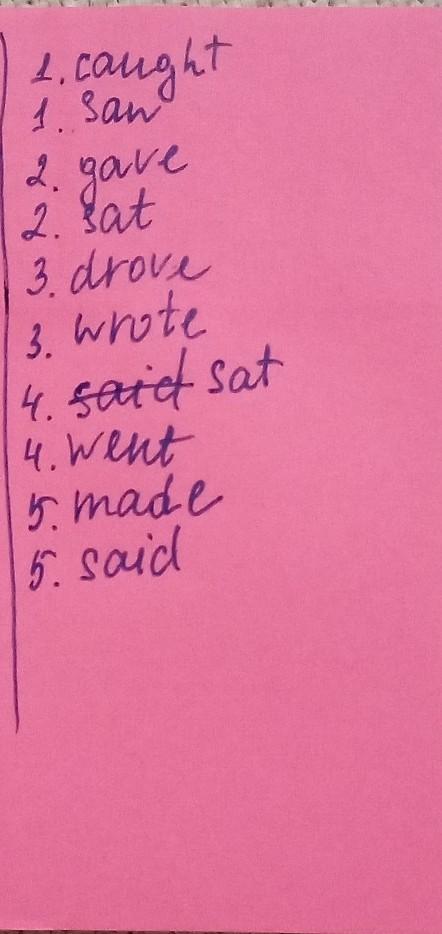 1. caught
1. saw
2. gave
2. sat
3. drove
3. wrote
4. said sat
4. went
5. made
5. said